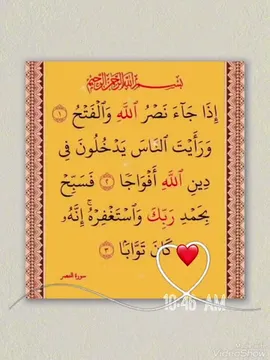 بِسْمِ اللَّهِ الرَّحْمَٰنِ الرَّحِيمِ
إِذَا جَآءَ نَصْرُ اللَّهِ وَالْفَتْحُ ١
وَرَأَيْتَ النَّاسَ يَدْخُلُونَ فِى
دِينِ اللَّهِ أَفْوَاجًا ٢ فَسَبِّحْ
بِحَمْدِ رَبِّكَ وَاسْتَغْفِرْهُ ۚ إِنَّهُۥ
كَانَ تَوَّابًۢا ٣
سورة النصر
10:46 AM